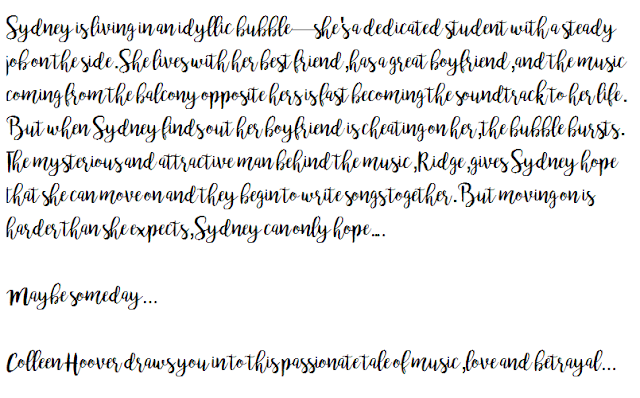 Sydney is living in an idyllic bubble—she's a dedicated student with a steady
job on the side. She lives with her best friend, has a great boyfriend, and the music
coming from the balcony opposite hers is fast becoming the soundtrack to her life.
But when Sydney finds out her boyfriend is cheating on her, the bubble bursts.
The mysterious and attractive man behind the music, Ridge, gives Sydney hope
that she can move on and they begin to write songs together. But moving on is
harder than she expects, Sydney can only hope….
Maybe someday…
Colleen Hoover draws you in to this passionate tale of music, love and betrayal…